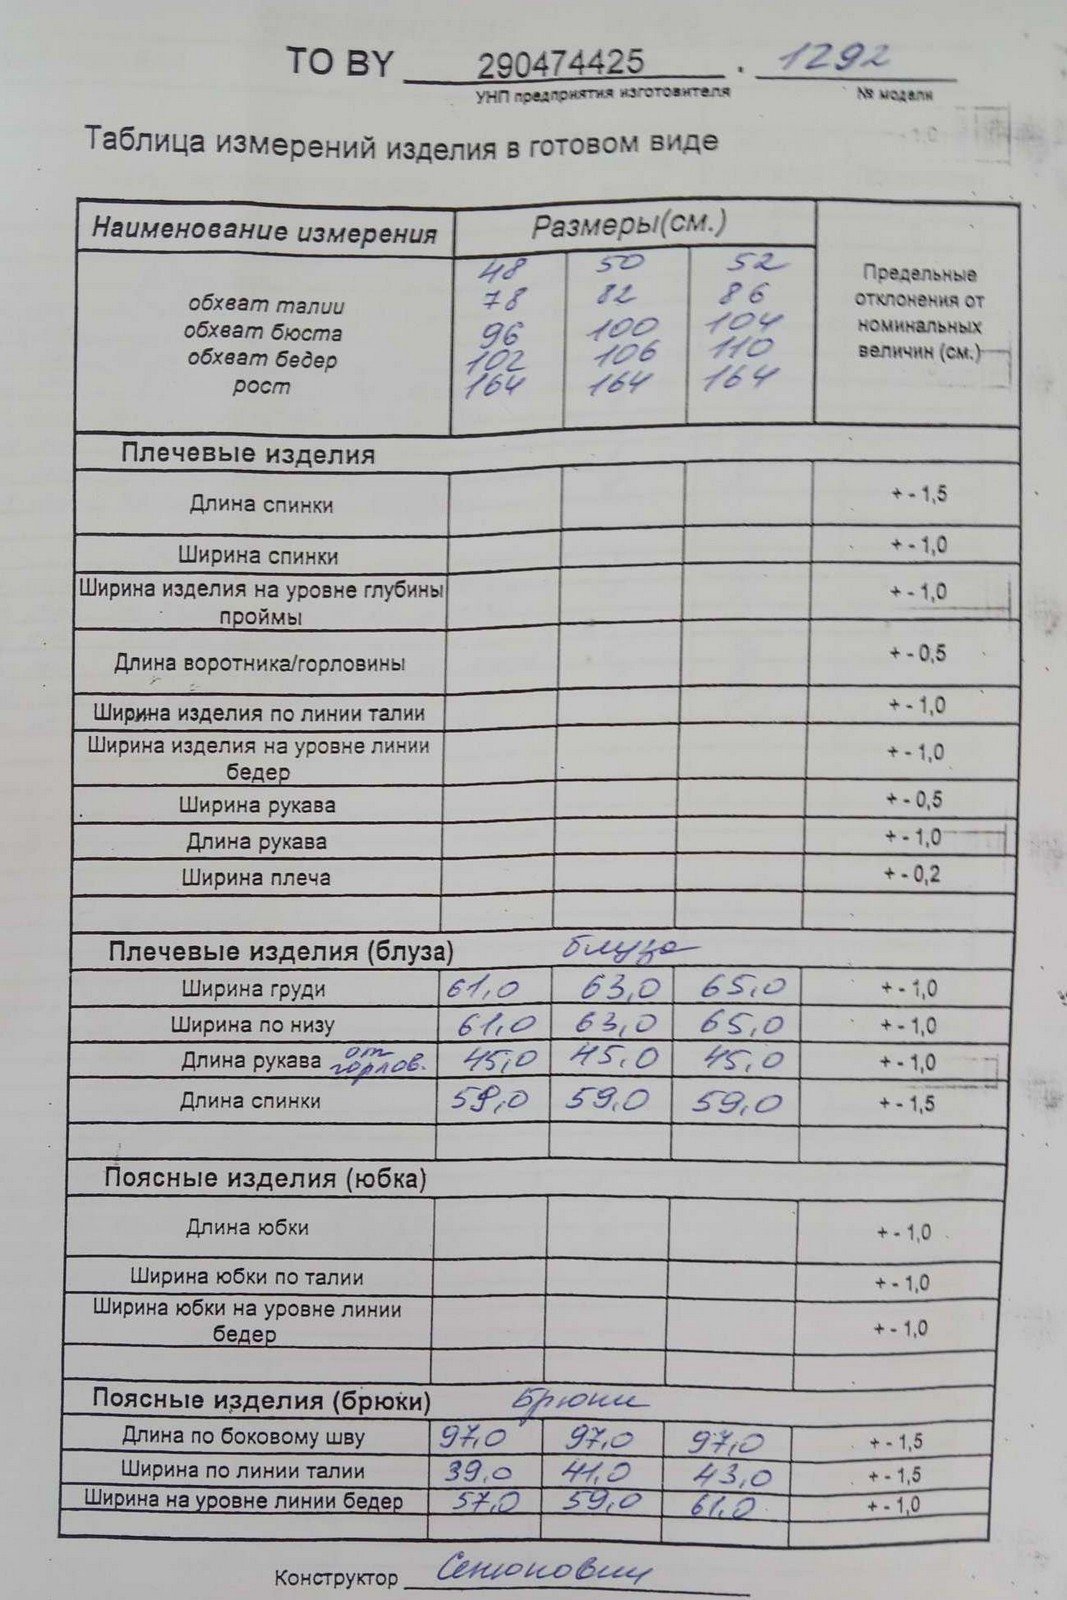 TO BY 290474425 . 1292
УНП предприятия изготовителя № модели
Таблица измерений изделия в готовом виде
Наименование измерения Размеры(см.) Предельные отклонения от номинальных величин (см.)
48 50 52
обхват талии 78 82 86
обхват бюста 96 100 104
обхват бедер 102 106 110
рост 164 164 164
Плечевые изделия
Длина спинки + - 1,5
Ширина спинки + - 1,0
Ширина изделия на уровне глубины
проймы + - 1,0
Длина воротника/горловины + - 0,5
Ширина изделия по линии талии + - 1,0
Ширина изделия на уровне линии
бедер + - 1,0
Ширина рукава + - 0,5
Длина рукава + - 1,0
Ширина плеча + - 0,2
Плечевые изделия (блуза) блуза
Ширина груди 61,0 63,0 65,0 + - 1,0
Ширина по низу 61,0 63,0 65,0 + - 1,0
Длина рукава от горлов. 45,0 45,0 45,0 + - 1,0
Длина спинки 59,0 59,0 59,0 + - 1,5
Поясные изделия (юбка)
Длина юбки + - 1,0
Ширина юбки по талии + - 1,0
Ширина юбки на уровне линии
бедер + - 1,0
Поясные изделия (брюки) Брюки
Длина по боковому шву 97,0 97,0 97,0 + - 1,5
Ширина по линии талии 39,0 41,0 43,0 + - 1,5
Ширина на уровне линии бедер 57,0 59,0 61,0 + - 1,0
Конструктор